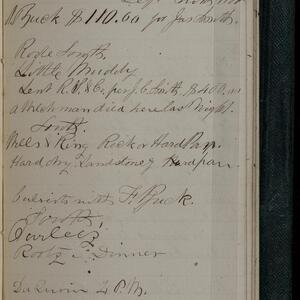 Buck $110.60 for Jas Smith.
Rode South.
Little Muddy
Lent R. V. & Co. per J. C. Smith $400.00
a Welchman died here last Night.
South.
Wells & King Rock or Hard Pan.
Hard dry Sandstone & Hardpan
with F Buck.
South.
Dinner
4 P.M.